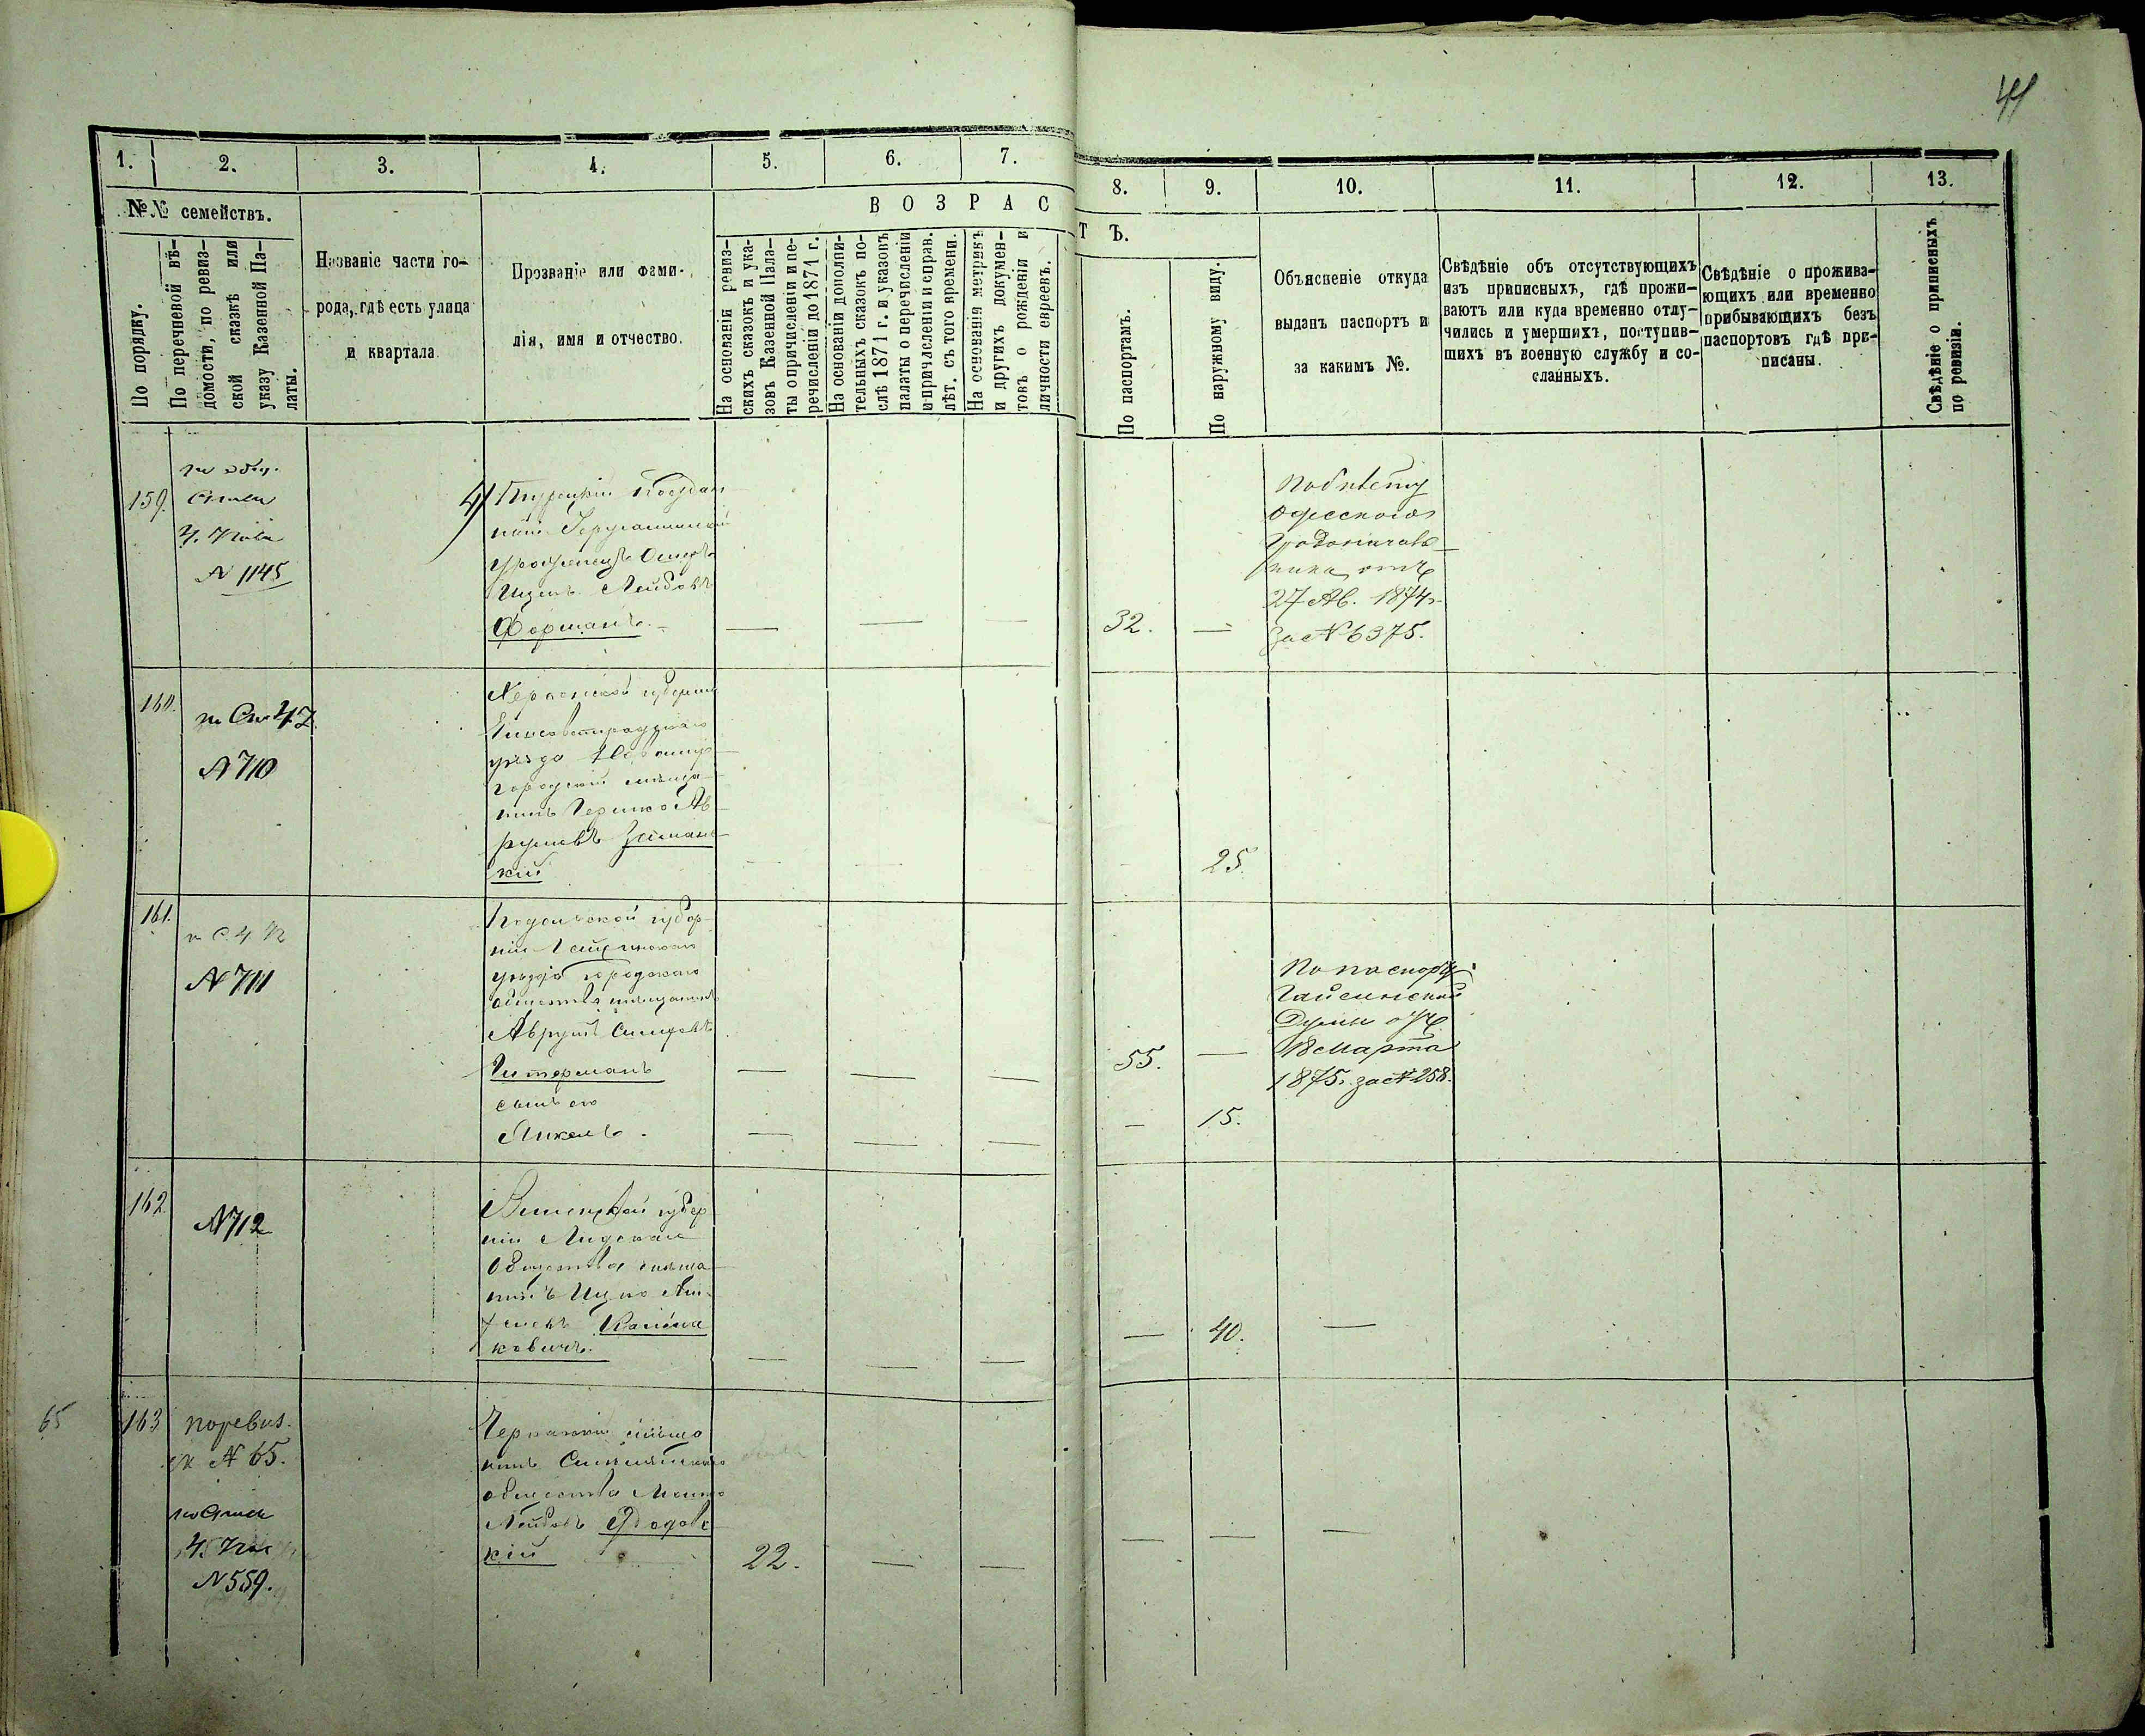 41
1.
2.
3.
4.
5.
6.
7.
8.
9.
10.
11.
12.
13.
№№ семействъ.
По порядку.
По перечневой вѣ-
домости, по ревиз-
ской сказкѣ или
указу Казенной Па-
латы.
Названіе части го-
рода, гдѣ есть улица
и квартала.
Прозваніе или фами-
лія, имя и отчество.
ВОЗРАС
ТЪ.
На основанія ревиз-
скихъ сказокъ и ука-
зовъ Казенной Пала-
ты о причисленіи и пе-
речисленіи до 1871 г.
На основаніи дополни-
тельныхъ сказокъ по-
слѣ 1871 г. и указовъ
палаты о перечисленіи
и причисленіи и справ.
лѣт. съ того времени.
На основаніи метрикъ
и другихъ докумен-
товъ о рожденіи и
личности евреевъ.
По паспортамъ.
По наружному виду.
Объясненіе откуда
выданъ паспортъ и
за какимъ №.
Свѣдѣніе объ отсутствующихъ
изъ приписныхъ, гдѣ прожи-
ваютъ или куда временно отлу-
чились и умершихъ, поступив-
шихъ въ военную службу и со-
сланныхъ.
Свѣдѣніе о прожива-
ющихъ или временно
прибывающихъ безъ
паспортовъ гдѣ при-
писаны.
Свѣдѣніе о приписныхъ
по ревизіи.
159.
№ 1145
Турецкій поддан
Лейбовъ
Форманъ.
32.
По билету
Одесскаго
Градоначаль-
ника отъ
27 Ав. 1874 г.
за № 6375.
160.
№ 710
Херсонской губерніи
Елисаветградскаго
уѣзда Новомир-
городскій мѣща-
нинъ Гершко Аб-
румовъ Займан-
кій
25.
161.
№ 711
Подольской губер-
ніи Гайсинскаго
уѣзда городскаго
общества мѣщанинъ
Аврумъ
Гитерманъ
сынъ его
Янкель.
55.
15.
По паспорту
Гайсинской
Думы отъ
18 Марта
1875 г. за № 258.
162
№ 712
Виленской губер
ніи Лидскаго
Общества мѣща
нинъ Ицко
ковичъ.
40.
65
163
по ревиз.
ск № 65.
№ 559.
Черкаскій мѣща
нинъ
общества Мошко
Лейбовъ
кій
22.